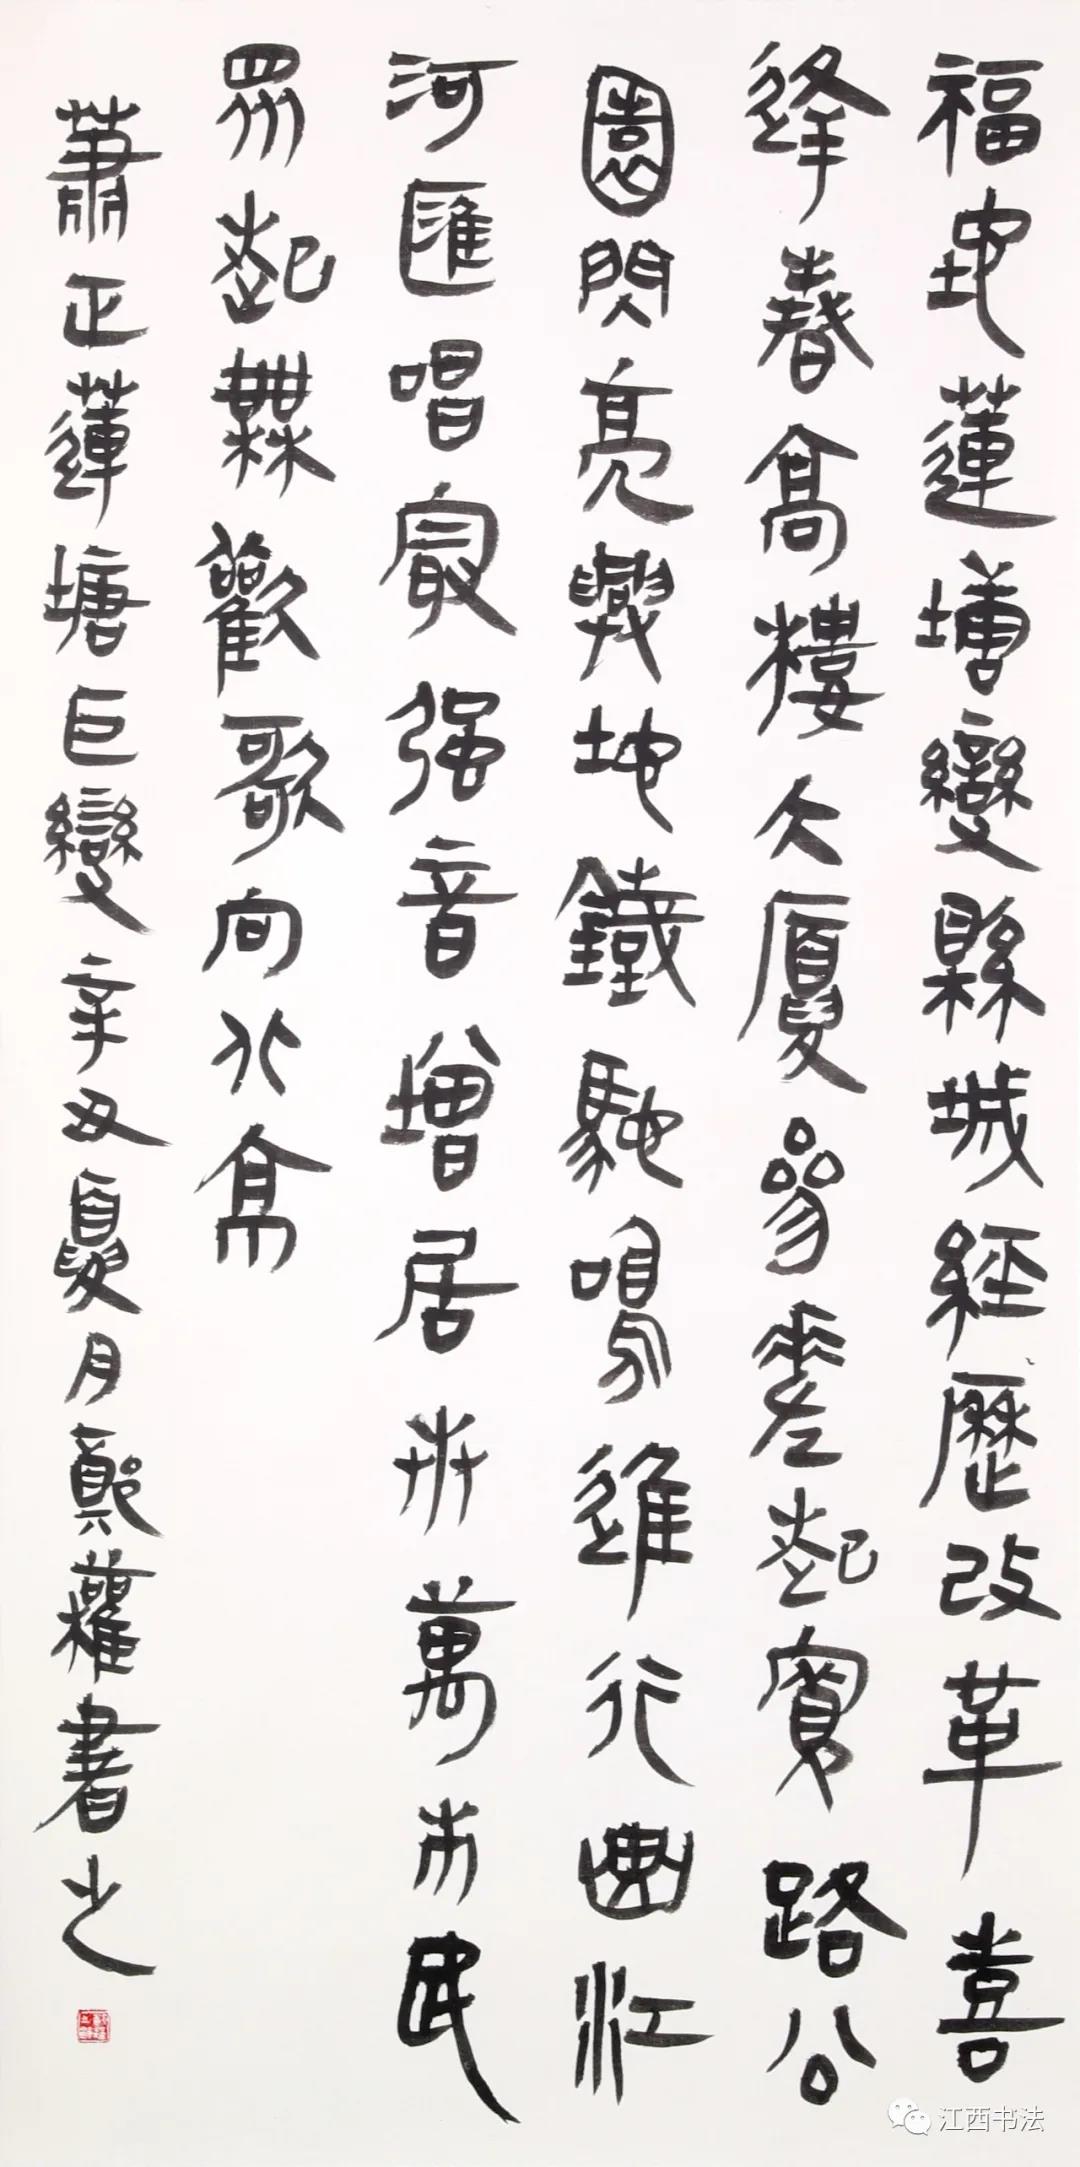 福地蓮塘變縣城經歷改革喜
逢春高樓大廈參差起寬路公
園閃亮興地鐵馳鳴進行曲江
河匯唱最强音增居卅萬市民
眾起舞歡歌向北京
蕭正蓮塘巨變辛丑夏月鄭權書之
江西书法